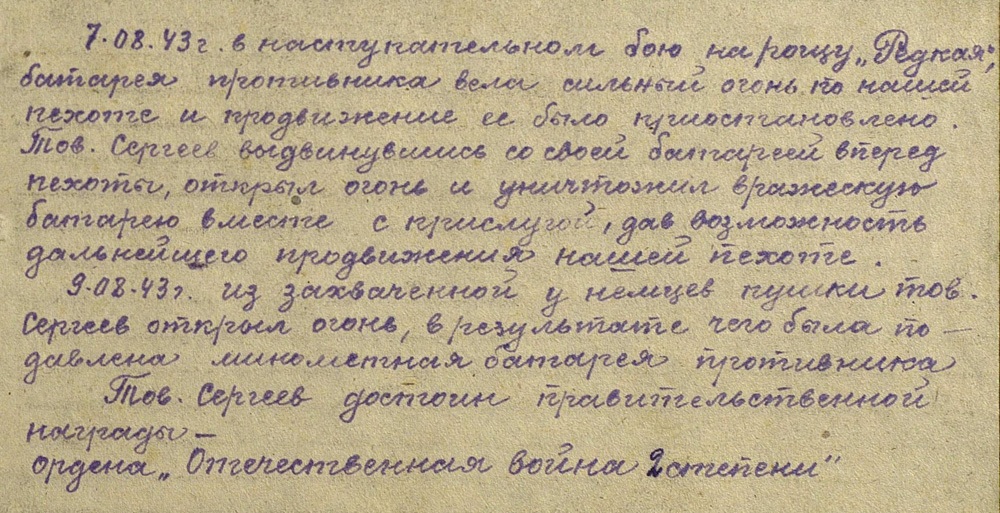 7.08.43 г. в наступательном бою на рощу „Редкая",
батарея противника вела сильный огонь по нашей
пехоте и продвижение ее было приостановлено.
Тов. Сергеев выдвинувшись со своей батареей вперед
пехоты, открыл огонь и уничтожил вражескую
батарею вместе с прислугой, дав возможность
дальнейшего продвижения нашей пехоте.
9.08.43 г. из захваченной у немцев пушки тов.
Сергеев открыл огонь, в результате чего была по-
давлена минометная батарея противника
Тов. Сергеев достоин правительственной
награды —
ордена „Отечественная война 2 степени"